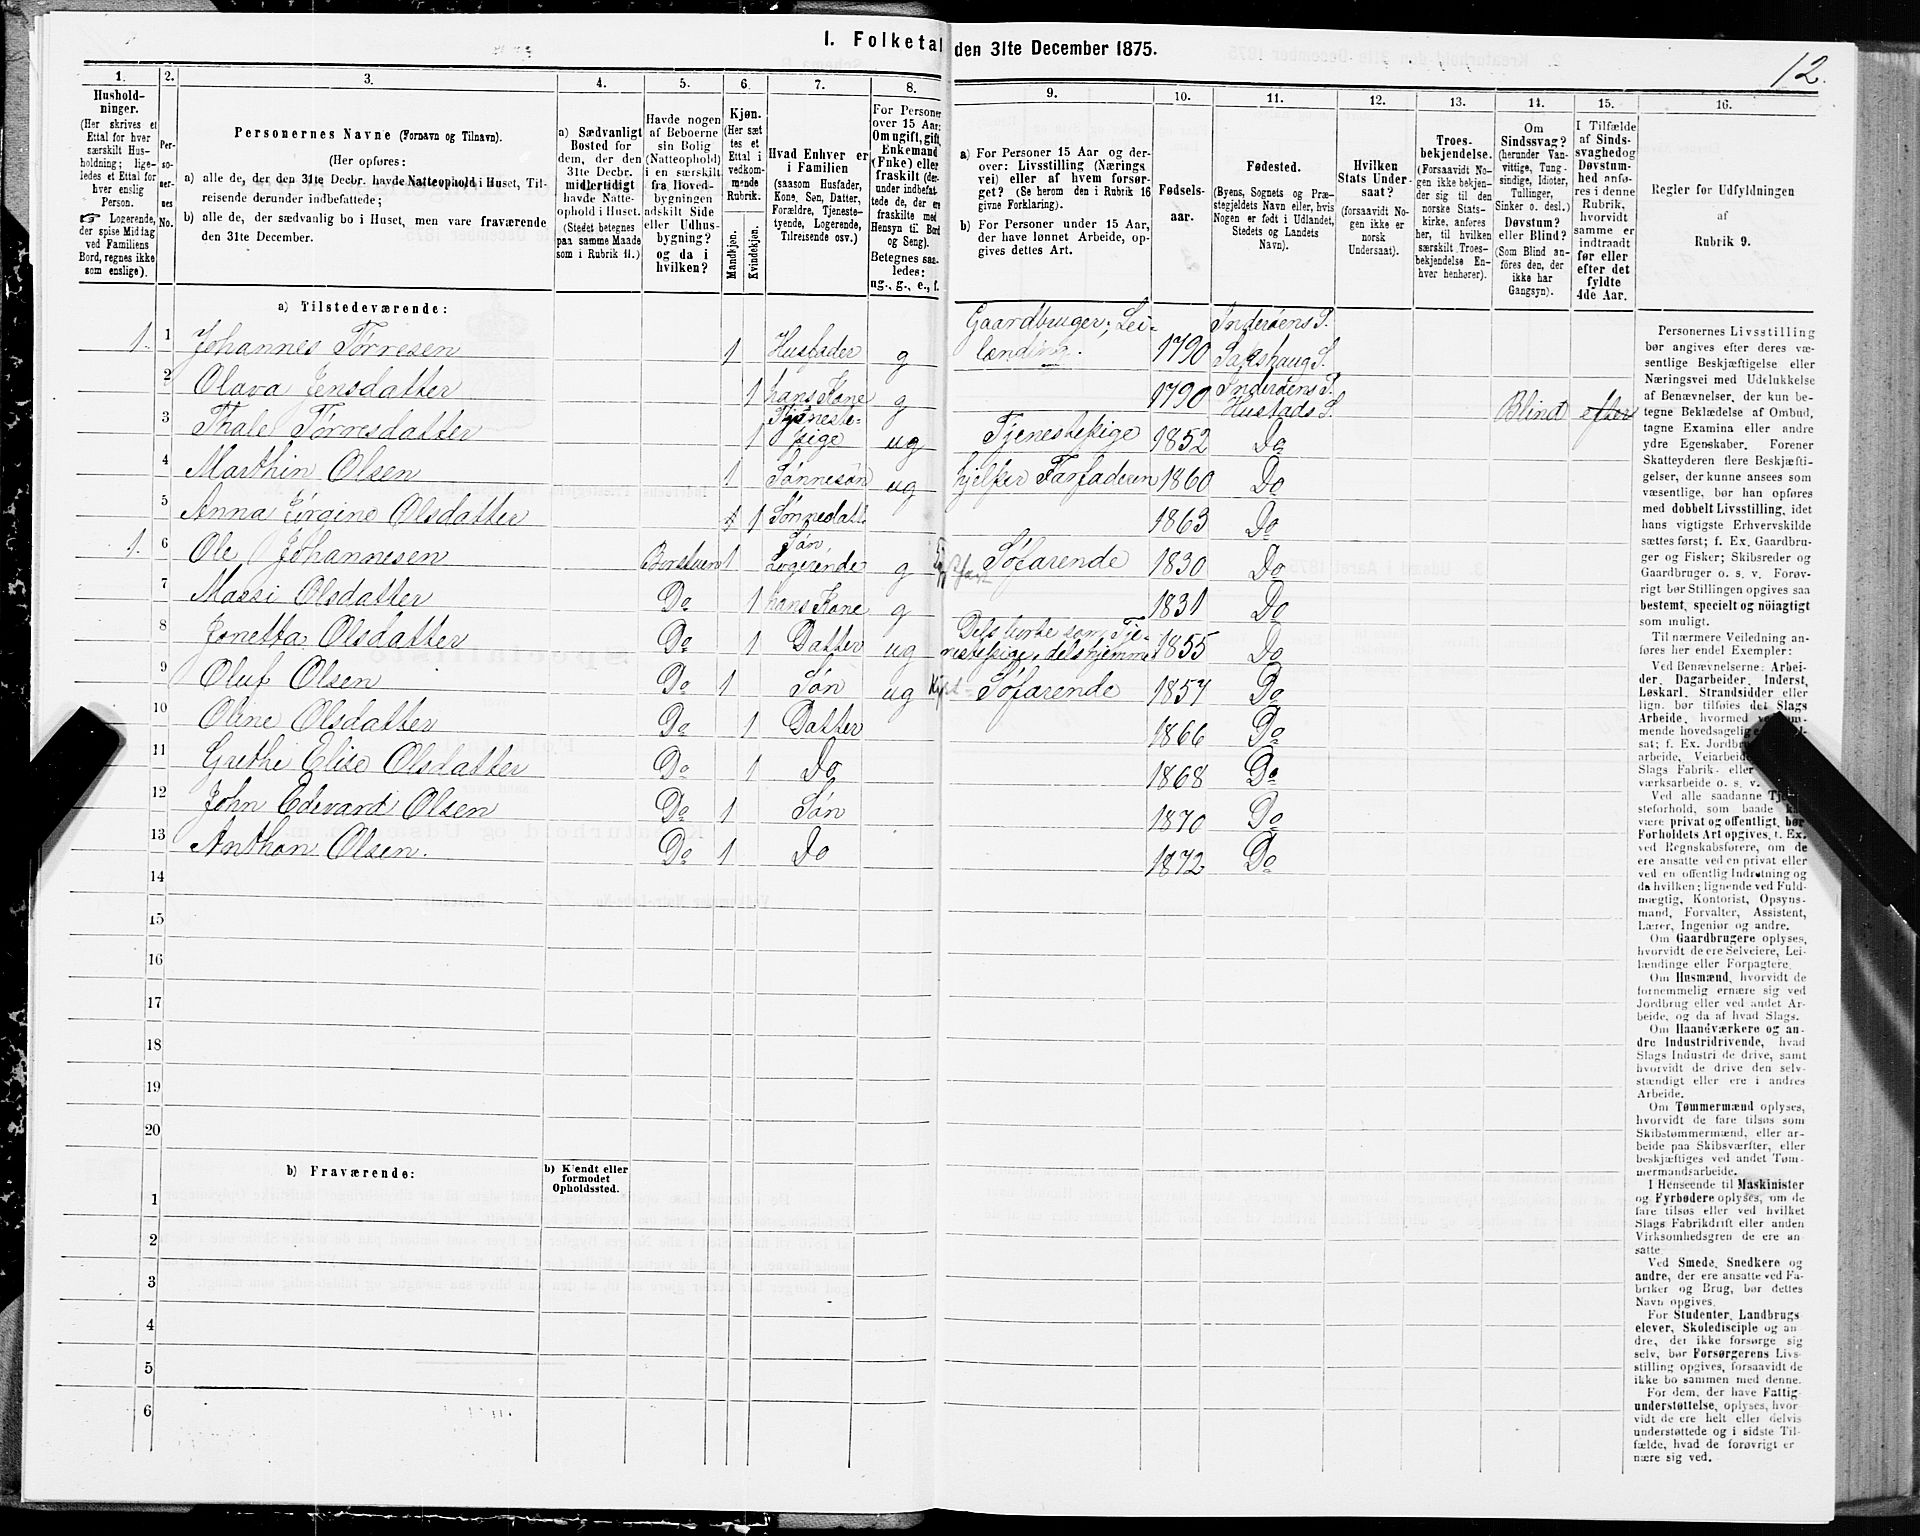 I. Folketal den 31te December 1875.
12.
1. 2. 3. 4. 5. 6. 7. 8. 9. 10. 11. 12. 13. 14. 15. 16.
Hushold-
ninger.
(Her skrives et
Ettal for hver
særskilt Hus-
holdning; lige-
ledes et Ettal for
hver enslig
Person.
☞ Logerende,
der spise Middag
ved Familiens
Bord, regnes ikke
som enslige).
Per-
so-
ner-
nes
No.
Personernes Navne (Fornavn og Tilnavn).
(Her opføres:
a) alle de, der den 31te Decbr. havde Natteophold i Huset, Til-
reisende derunder indbefattede;
b) alle de, der sædvanlig bo i Huset, men vare fraværende
den 31te December.
a) Sædvanligt
Bosted for
dem, der den
31te Decbr.
midlertidigt
havde Natte-
ophold i Huset.
(Stedet betegnes
paa samme Maade
som i Rubrik 11.)
Havde nogen
af Beboerne
sin Bolig
(Natteophold)
i en særskilt
fra Hoved-
bygningen
adskilt Side
eller Udhus-
bygning?
og da i
hvilken?
Kjøn.
(Her sæt
tes et
Ettal i
vedkom-
mende
Rubrik.
Mandkjøn.
Kvindekjøn.
Hvad Enhver er
i Familien
(saasom Husfader,
Kone, Søn, Datter,
Forældre, Tjeneste-
tyende, Logerende,
Tilreisende osv.)
For Personer
over 15 Aar:
Om ugift, gift,
Enkemand
(Enke) eller
fraskilt (der-
under indbefat-
tede de, der ere
fraskilte med
Hensyn til Bord
og Seng).
Betegnes saa-
ledes:
ug., g., e., f.
a) For Personer 15 Aar og der-
over: Livsstilling (Nærings
vei) eller af hvem forsør-
get? (Se herom den i Rubrik 16
givne Forklaring).
b) For Personer under 15 Aar,
der have lønnet Arbeide, op-
gives dettes Art.
Fødsels-
aar.
Fødested.
(Byens, Sognets og Præ-
stegjeldets Navn eller, hvis
Nogen er født i Udlandet,
Stedets og Landets
Navn).
Hvilken
Stats Under-
saat?
(forsaavidt No-
gen ikke er
norsk
Undersaat).
Troes-
bekjendelse.
(Forsaavidt No-
gen ikke bekjen-
der sig til den
norske Stats-
kirke, anføres
her, til hvilken
særskilt Troes-
bekjendelse En-
hver henhører).
Om
Sindssvag?
(herunder Van-
vittige, Tung-
sindige, Idioter,
Tullinger,
Sinker o. desl.)
Døvstum?
eller Blind?
(Som Blind an-
føres den, der
ikke har
Gangsyn).
I Tilfælde
af Sinds-
svaghed og
Døvstum-
hed anfø-
res i denne
Rubrik,
hvorvidt
samme er
indtraadt
før eller
efter det
fyldte
4de Aar.
Regler for Udfyldningen
af
Rubrik 9.
a) Tilstedeværende:
1. 1 Johannes Tørresen 1 Husfader g Gaardbruger, Lei-
lænding. 1790 Inderøens P. Sakshaug S.
2 Olava Jensdatter 1 hans Kone g 1790 Inderøens P. Hustads S. Blind efter
3 Thale Tørresdatter 1 Tjeneste-
pige ug Tjenestepige 1852 Do
4 Marthin Olsen 1 Sønnesøn ug hjelper Farfaderen 1860 Do
5 Anna Jørgine Olsdatter 1 Sønnedatt 1863 Do
1. 6 Ole Johannesen Borstuen 1 Søn,
Logerende g Søfarende 1830 Do
7 Massi Olsdatter Do 1 hans Kone g 1831 Do
8 Jonetta Olsdatter Do 1 Datter ug Dels borte som Tje-
nestepige, dels hjemme 1855 Do
9 Oluf Olsen Do 1 Søn ug Søfarende 1857 Do
10 Oline Olsdatter Do 1 Datter 1866 Do
11 Grethe Elise Olsdatter Do 1 Do 1868 Do
12 John Edevard Olsen Do 1 Søn 1870 Do
13 Anthon Olsen. Do 1 Do 1872 Do
14
15
16
17
18
19
20
b) Fraværende:
b) Kjendt eller
formodet
Opholdssted.
1
2
3
4
5
6
Personernes Livsstilling
bør angives efter deres væ-
sentlige Beskjæftigelse eller
Næringsvei med Udelukkelse
af Benævnelser, der kun be-
tegne Beklædelse af Ombud,
tagne Examina eller andre
ydre Egenskaber. Forener
Skatteyderen flere Beskjæfti-
gelser, der kunne ansees som
væsentlige, bør han opføres
med dobbelt Livsstilling, idet
hans vigtigste Erhvervskilde
sættes først; f. Ex. Gaardbru-
ger og Fisker; Skibsreder og
Gaardbruger o. s. v. Forøv-
rigt bør Stillingen opgives saa
bestemt, specielt og nøiagtigt
som muligt.
Til nærmere Veiledning an-
føres her endel Exempler:
Ved Benævnelserne: Arbei-
der, Dagarbeider, Inderst,
Løskarl, Strandsidder eller
lign. bør tilføies det Slags
Arbeide, hvormed
mende hovedsagelig
sat; f. Ex. Jordbru
arbeide, Veiarbeide
Slags Fabrik- eller
værksarbeide o. s. v.
Ved alle saadanne
steforhold, som baade
være privat og offentligt, bør
Forholdets Art opgives, f. Ex.
ved Regnskabsførere, om de
ere ansatte ved en privat eller
ved en offentlig Indretning og
da hvilken; lignende ved Fuld-
mægtig, Kontorist, Opsyns-
mand, Forvalter, Assistent,
Lærer, Ingeniør og andre.
Om Gaardbrugere oplyses,
hvorvidt de ere Selveiere, Lei-
lændinge eller Forpagtere.
Om Husmænd, hvorvidt de
fornemmelig ernære sig ved
Jordbrug eller ved andet Ar-
beide, og da af hvad Slags.
Om Haandværkere og an-
dre Industridrivende, hvad
Slags Industri de drive, samt
hvorvidt de drive den selv-
stændigt eller ere i andres
Arbeide.
Om Tømmermænd oplyses,
hvorvidt de fare tilsøs som
Skibstømmermænd, eller ar-
beide paa Skibsværfter, eller
beskjæftiges ved andet Tøm-
mermandsarbeide.
I Henseende til Maskinister
og Fyrbødere oplyses, om de
fare tilsøs eller ved hvilket
Slags Fabrikdrift eller anden
Virksomhedsgren de ere an-
satte
Ved Smede, Snedkere og
andre, der ere ansatte ved Fa-
briker og Brug, bør dettes
Navn opgives.
For Studenter, Landbrugs
elever, Skoledisciple og an-
dre, der ikke forsørge sig
selv, bør Forsørgerens Livs-
stilling opgives, forsaavidt de
ikke bo sammen med denne.
For dem, der have Fattig-
understøttelse, oplyses, hvor-
vidt de ere helt eller delvis
understøttede og i sidste Til-
fælde, hvad de forøvrigt er
nære sig ved.